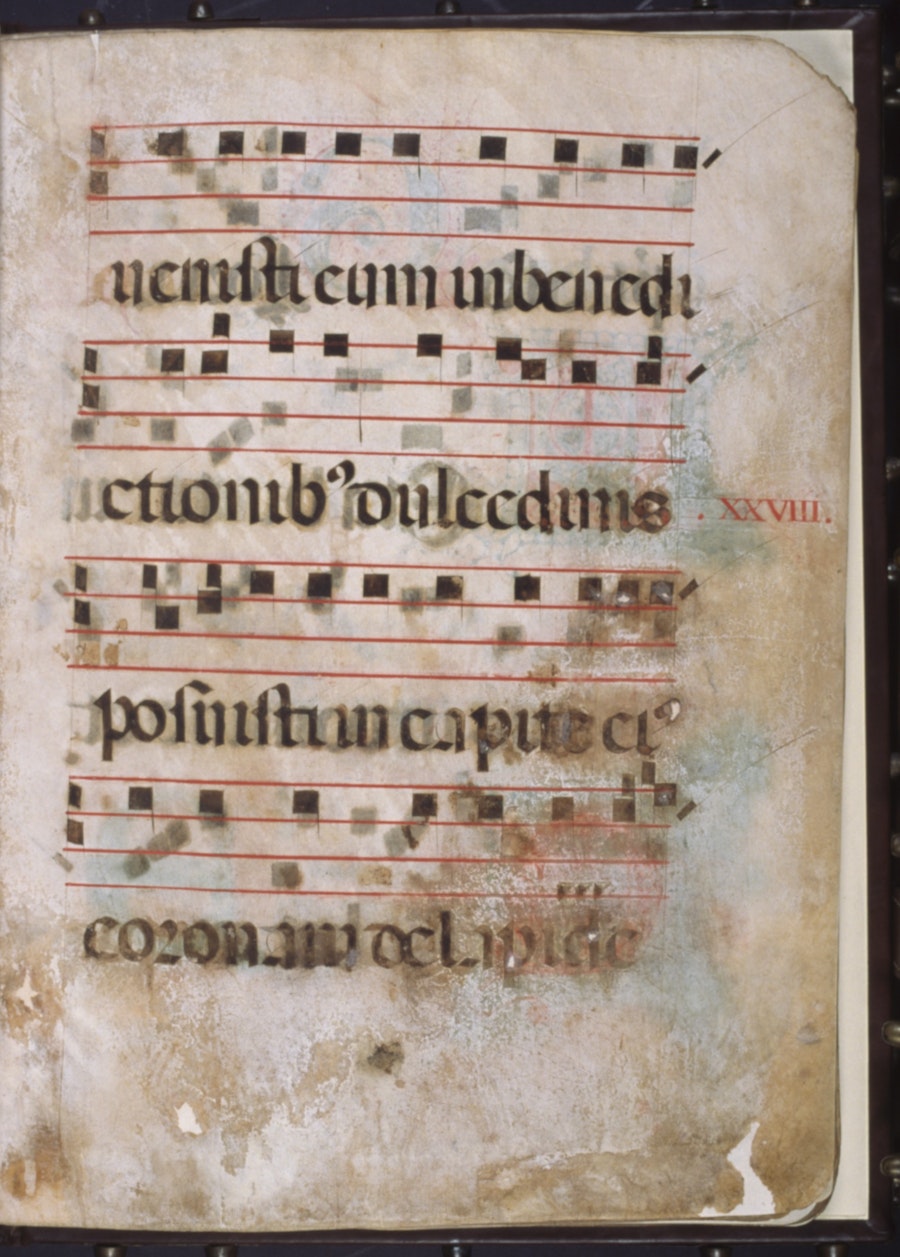 uenisti eum in benedi
ctionib⁹ dulcedinis
. XXVIII .
posuisti in capite ei⁹
coronam de lapide